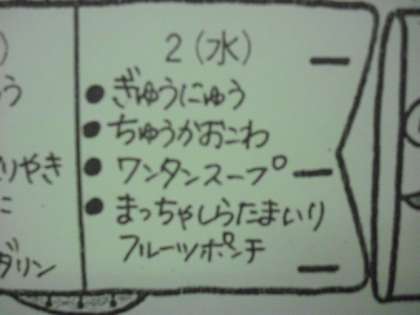 2(水)
●ぎゅうにゅう
●ちゅうかおこわ
●ワンタンスープ
●まっちゃしらたまいり
フルーツポンチ
)
う
りやき
に
ダリン